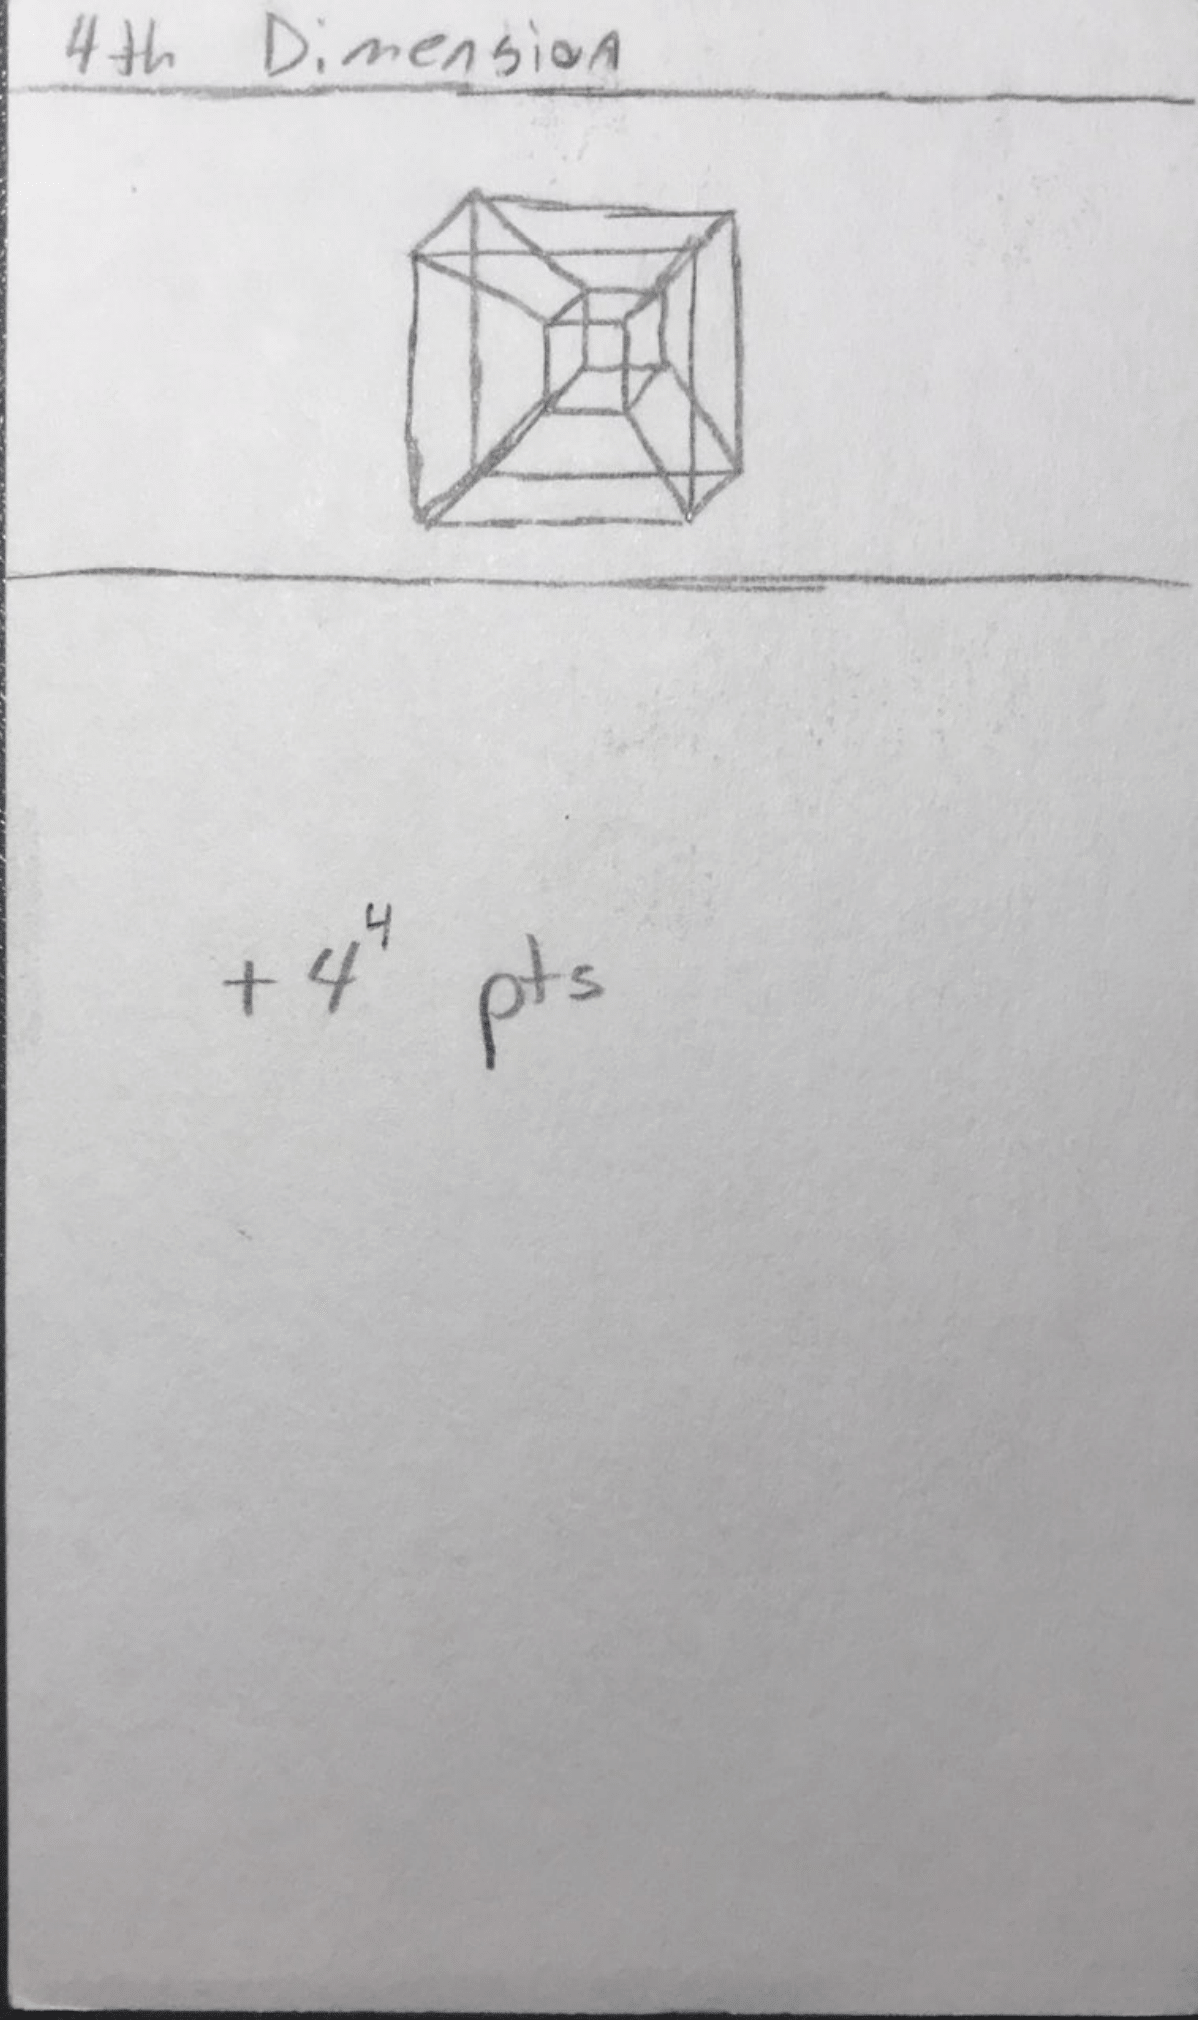 4th Dimension
+4⁴ pts